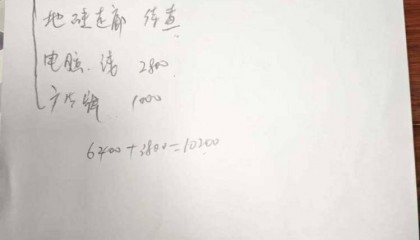 地砖走廊 待查
电脑、线 2800
广告牌 1000
6400+3800=10200